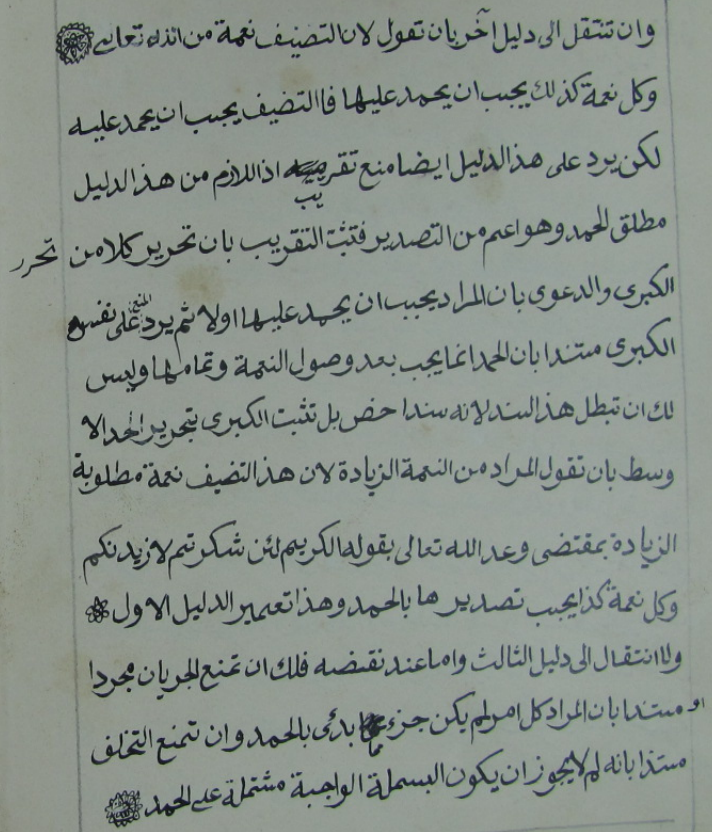 وان تنتقل الى دليل آخر بان تقول لان التصنيف نعمة من الله تعالى
وكل نعمة كذلك يجب ان يحمد عليها فاالتضيف يجب ان يحمد عليه
لكن يرد على هذا الدليل ايضا منع تقريب اذ اللازم من هذا الدليل
مطلق الحمد وهو اعم من التصدير فتثبت التقريب بان تحرير كلا من تحرر
الكبرى والدعوى بان المراد يجب ان يحمد عليها اولا ثم يرد المنع على نفس
الكبرى مستندا بان الحمد انما يجب بعد وصول النعمة وتمامها وليس
لك ان تبطل هذا السند لانه سند اخص بل تثبت الكبرى بتحرير الحد الا
وسط بان تقول المراد من النعمة الزيادة لان هذا التضيف نعمة مطلوبة
الزيادة بمقتضى وعد الله تعالى بقوله الكريم لئن شكرتم لازيدنكم
وكل نعمة كذا يجب تصديرها بالحمد وهذا تعمير الدليل الاول
ولا انتقال الى دليل الثالث واما عند نقضه فلك ان تمنع الجريان مجردا
او مستندا بان المراد كل امر لم يكن جزء مما بدئ بالحمد وان تمنع التخلف
مستندا بانه لم لا يجوز ان يكون البسملة الواجبة مشتملة على الحمد